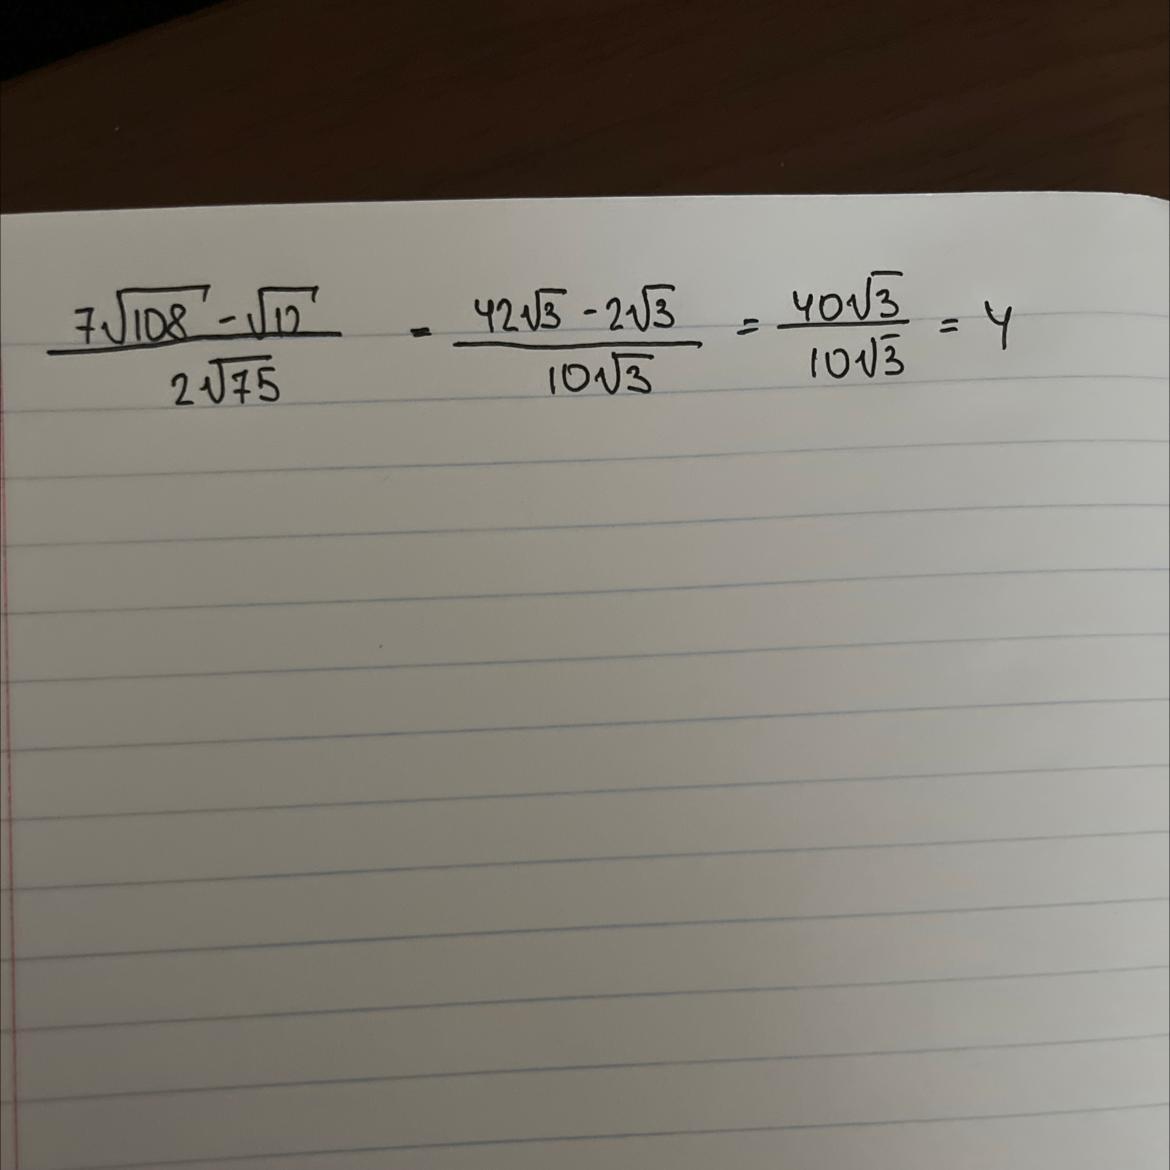 (7√108 - √12)/(2√75) = (42√3 - 2√3)/(10√3) = (40√3)/(10√3) = 4